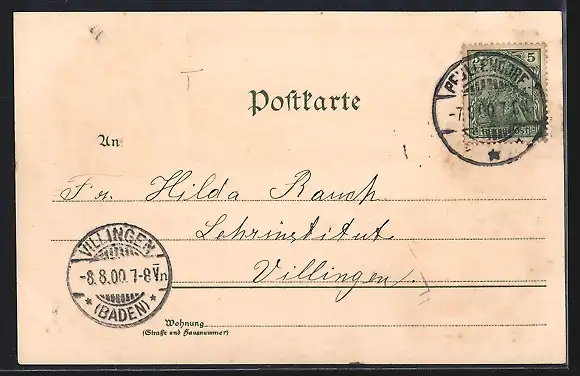 5
PFULLENDORF
-7.8.00.7-8N
Postkarte
An
Fr. Hilda Rauch
Lehrinstitut
Villingen.
VILLINGEN
-8.8.00.7-8Vn
* (BADEN) *
Wohnung
(Straße und Hausnummer)